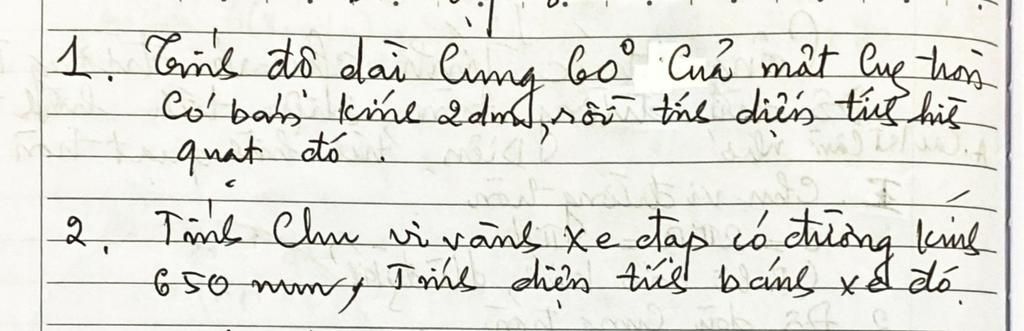 1. Tính độ dài cung 60° của một cung tròn
có bán kính 2dm, rồi tính diện tích hình
quạt đó.
2. Tính chu vi vành xe đạp có đường kính
650 mm, Tính diện tích bánh xe đó.